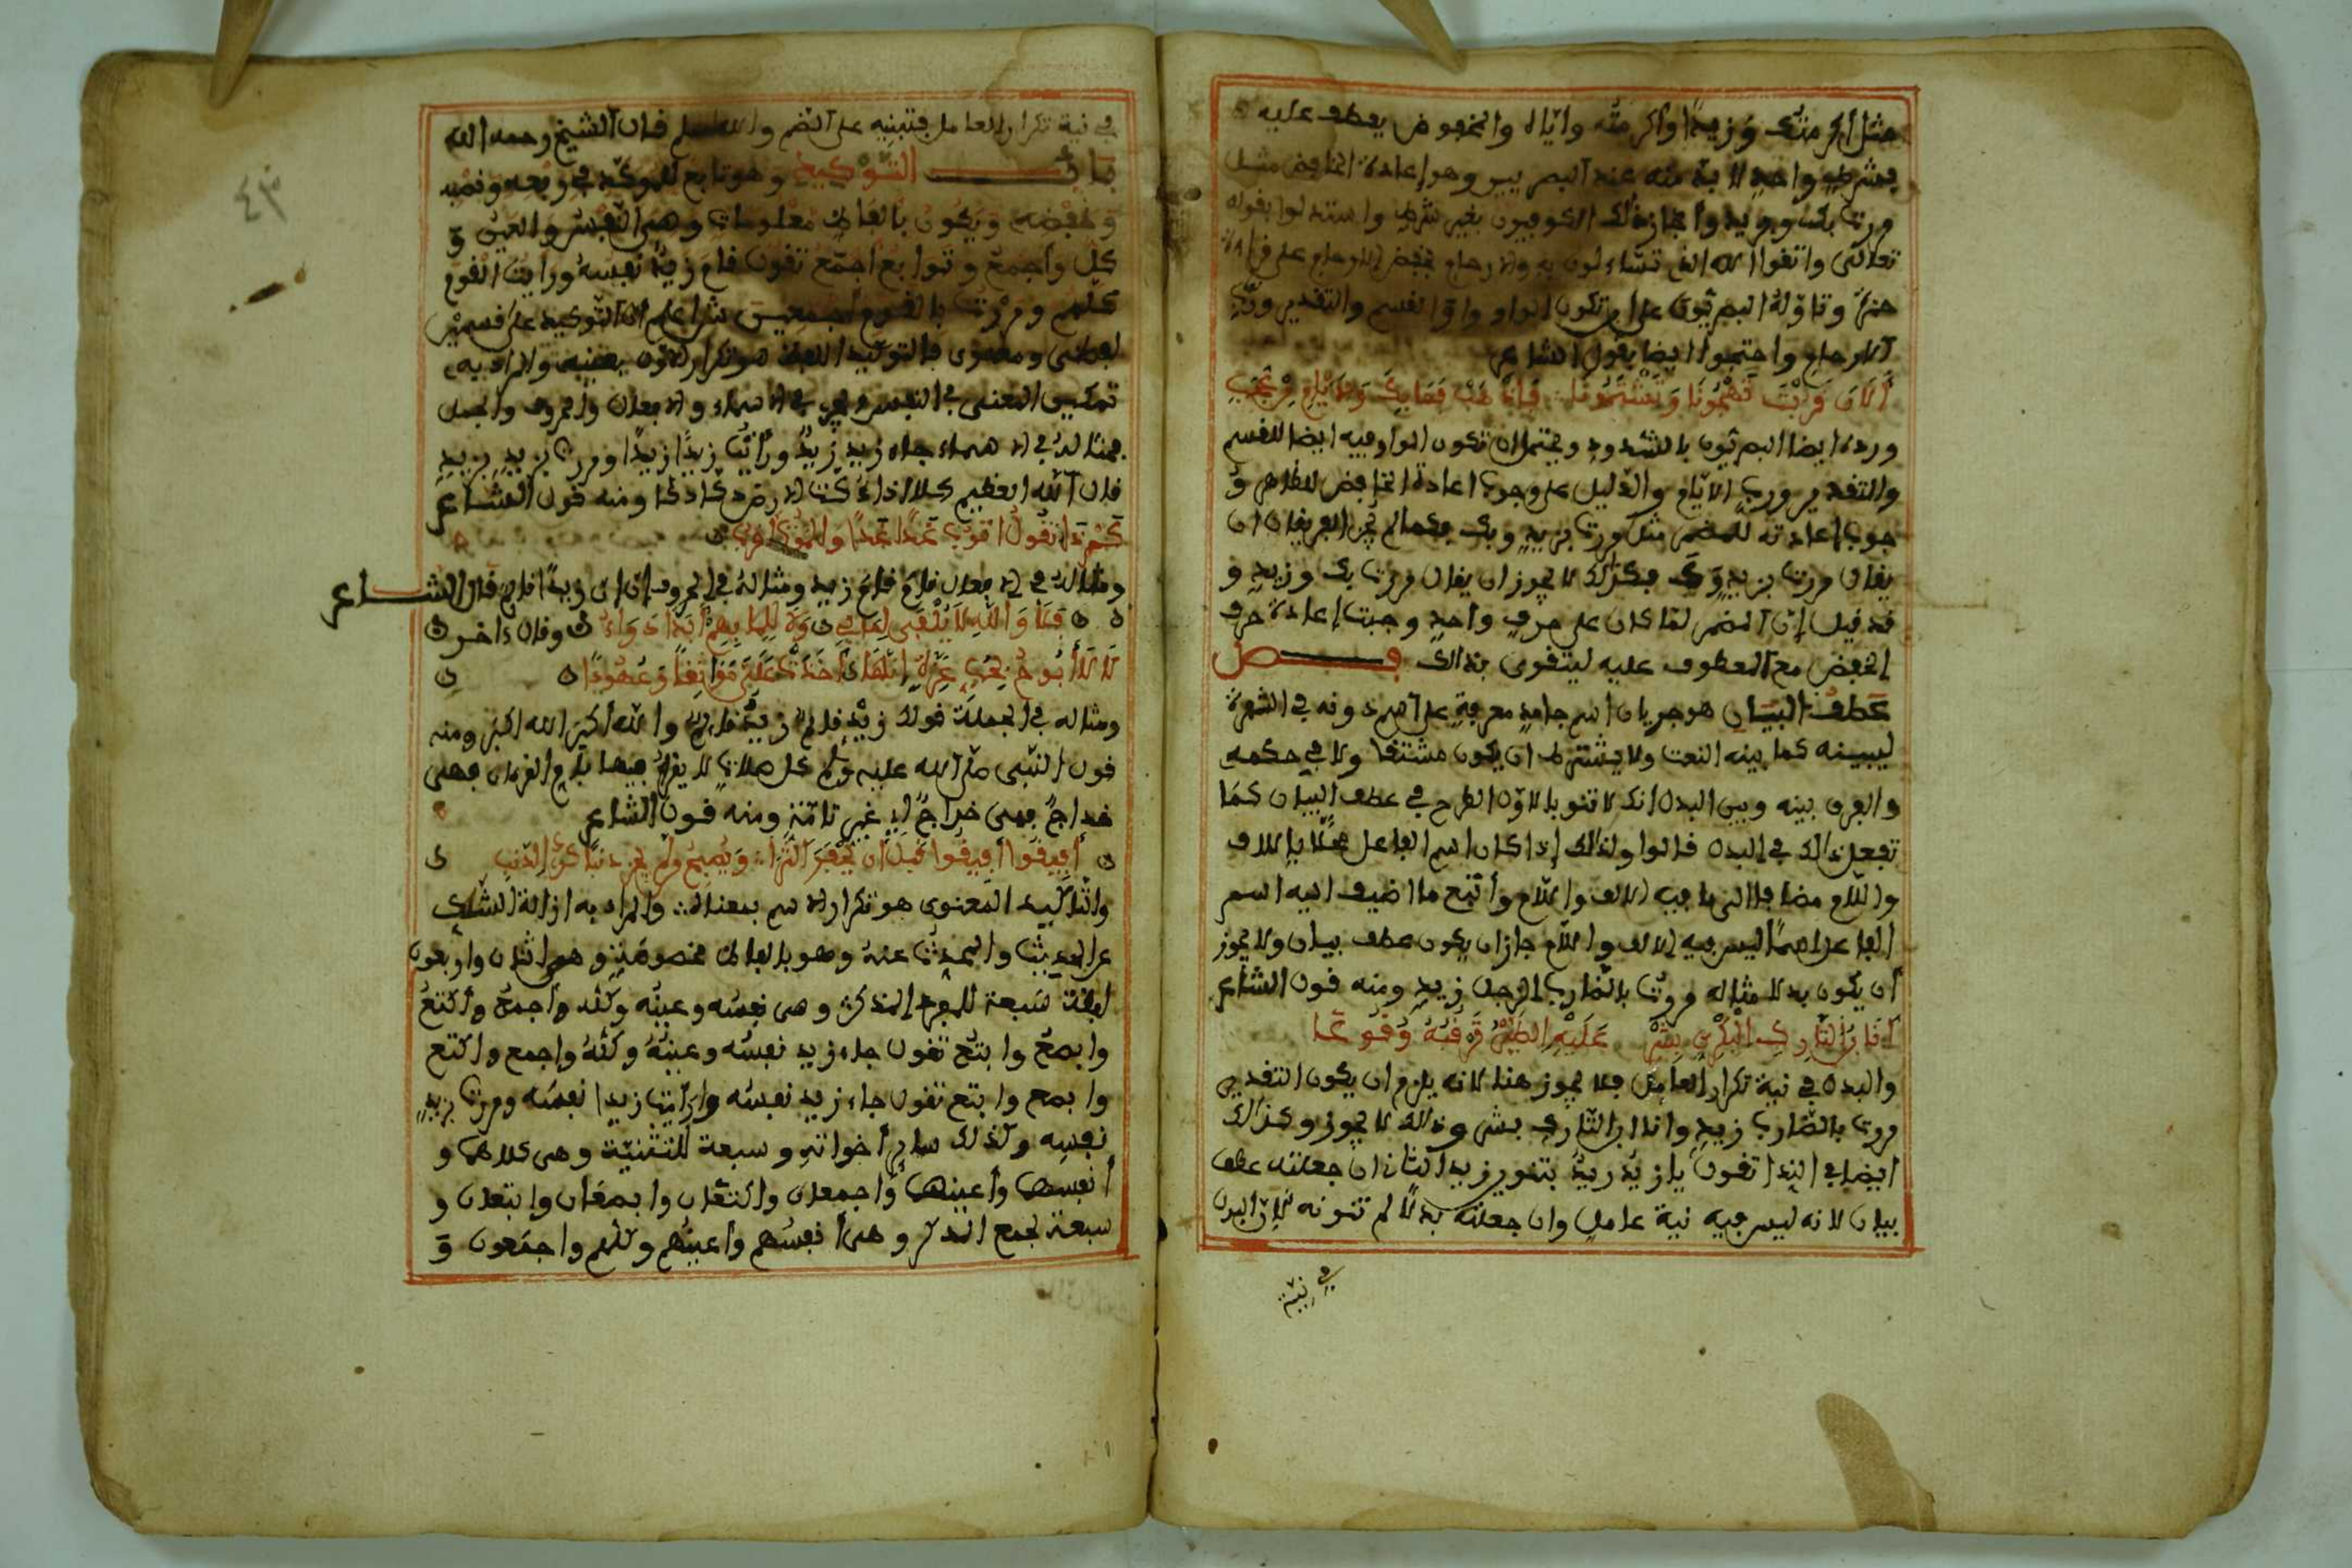 مثل أكرمتك وزيدا وأكرمته وإياه والمخفوض يعطف عليه
بشرط واحد لا بد منه عند البصريين وهو إعادة الخافض مثل
مررت بك وبزيد وأجاز ذلك الكوفيون بغير شرط واستدلوا بقوله
تعالى واتقوا الله الذي تساءلون به والارحام بخفض الارحام على قراءة
حمزة وتأوله البصريون على أن تكون الواو واو القسم والتقدير ورب
الارحام واحتجوا ايضا بقول الشاعر
فاذهب فما بك والايام من عجب
ورده ايضا البصريون بالشذوذ ويحتمل ان تكون الواو فيه ايضا للقسم
والتقدير ورب الايام والدليل على وجوب اعادة الخافض للظاهر و
جوب إعادته للمضمر مثل مررت بزيد وبك فكما لم يجز الفريقان ان
يقال مررت بزيد وك فكذلك لا يجوز ان يقال مررت بك وزيد و
قد قيل إن المضمر لما كان على حرف واحد وجبت إعادة حرف
الخفض مع المعطوف عليه ليتقوى بذالك فصل
عطف البيان هو جريان اسم جامد معرفة على اسم دونه في الشهرة
ليبينه كما يبينه النعت ولا يشترط ان يكون مشتقا ولا في حكمه
والفرق بينه وبين البدل انك لا تنو بالاول الطرح في عطف البيان كما
تفعل ذالك في البدل قالوا ولذالك إذا كان اسم الفاعل محلا بالالف
واللام مضافا الى ما فيه الالف واللام وأتبع ما اضيف اليه اسم
الفاعل اسما ليس فيه الالف واللام جاز ان يكون عطف بيان ولا يجوز
أن يكون بدلا مثاله مررت بالضارب الرجل زيد ومنه قول الشاعر
أنا ابن التارك البكري بشر عليه الطير ترقبه وقوعا
والبدل في نية تكرار العامل فلا يجوز هنا لانه يلزم ان يكون التقدير
مررت بالضارب زيد وانا ابن التارك بشر وذالك لا يجوز وكذالك
ايضا في النداء تقول يا زيد زيد بتنوين زيد الثاني ان جعلته عطف
بيان لانه ليس فيه نية عامل وان جعلته بدلا لم تنونه لان البدل
في نية
٤٣
في نية تكرار العامل فتبنيه على الضم والله اعلم قال الشيخ رحمه الله
باب التوكيد وهو تابع للموكد في رفعه ونصبه
وخفضه ويكون بألفاظ معلومات وهي النفس والعين و
كل وأجمع وتوابع أجمع تقول قام زيد نفسه ورأيت القوم
كلهم ومررت بالقوم أجمعين ش اعلم ان التوكيد على قسمين
لفظي ومعنوي فالتوكيد اللفظ هو تكرار الاول بعينه والمراد به
تمكين المعنى في النفس ويجري في الاسماء والافعال والحروف والجمل
فمثاله في الاسماء جاء زيد زيد ورأيت زيدا زيدا ومررت بزيد بزيد
قال الله العظيم كلا اذا دكت الارض دكا دكا ومنه قول الشاعر
ومثاله في الافعال قام قام زيد ومثاله في الحروف إن إن زيدا قائم قال الشاعر
فلا والله لا يلفى لما بي ولا للما بهم أبدا دواء وقال ءاخر
لا لا أبوح بحب عزة إنها أخذت علي مواثقا وعهودا
ومثاله في الجملة قولك زيد قائم زيد قائم والله أكبر الله اكبر ومنه
قول النبي صلى الله عليه وسلم كل صلاة لا يقرأ فيها بأم القرءان فهي
خداج فهي خداج أي غير تامة ومنه قول الشاعر
أفيقوا أفيقوا قبل أن يحفر الثرى ويصبح من لم يجن ذنبا كذي الذنب
والتأكيد المعنوي هو تكرار الاسم بمعناه والمراد به ازالة الشك
عن الحديث والمحدث عنه وهو بالفاظ مخصوصة وهي اثنان واربعون
لفظة سبعة للمفرد المذكر وهي نفسه وعينه وكله وأجمع وأكتع
وابصع وابتع تقول جاء زيد نفسه وعينه وكله وأجمع واكتع
وابصع وابتع تقول جاء زيد نفسه ورأيت زيدا نفسه ومررت بزيد
نفسه وكذلك سائر أخواته وسبعة للتثنية وهي كلاهما و
أنفسهما وأعينهما وأجمعان واكتعان وابصعان وابتعان و
سبعة لجمع المذكر وهي أنفسهم وأعينهم وكلهم واجمعون و